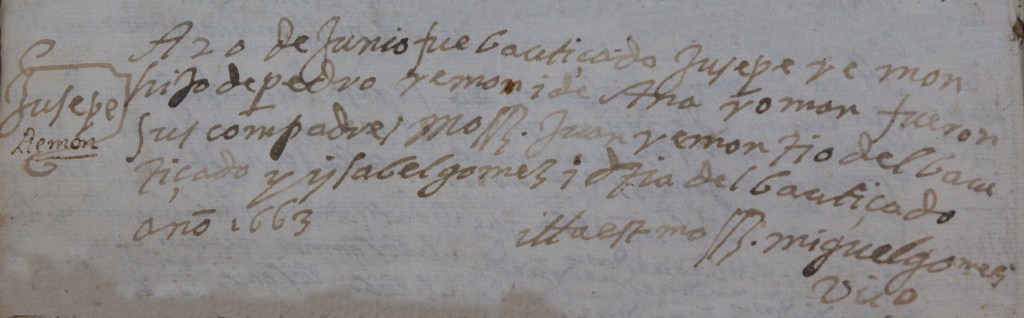 Jusepe
Remon
A 20 de Junio fue bautiçado Jusepe remon
hiJo de pedro remon i de Ana roman fueron
sus compadres Moss. Juan remon tio del bau
tiçado y ysabel gomez i tia del bautiçado
año 1663
itta est moss. miguel gomez
Vico